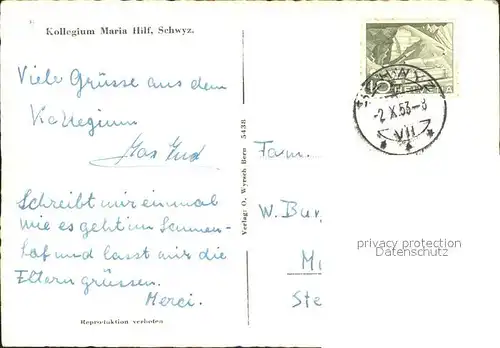 Kollegium Maria Hilf, Schwyz.
Viele Grüsse aus dem
Kollegium
Schreibt mir einmal
wie es geht im Sonnen-
hof und lasst mir die
Eltern grüssen.
Merci.
Reproduktion verboten
Verlag: O. Wyrsch Bern 5438
5
HELVETIA
SCHWYZ
-2.X.53-8
Fam.
W. Bur
M
Ste
privacy protection
Datenschutz